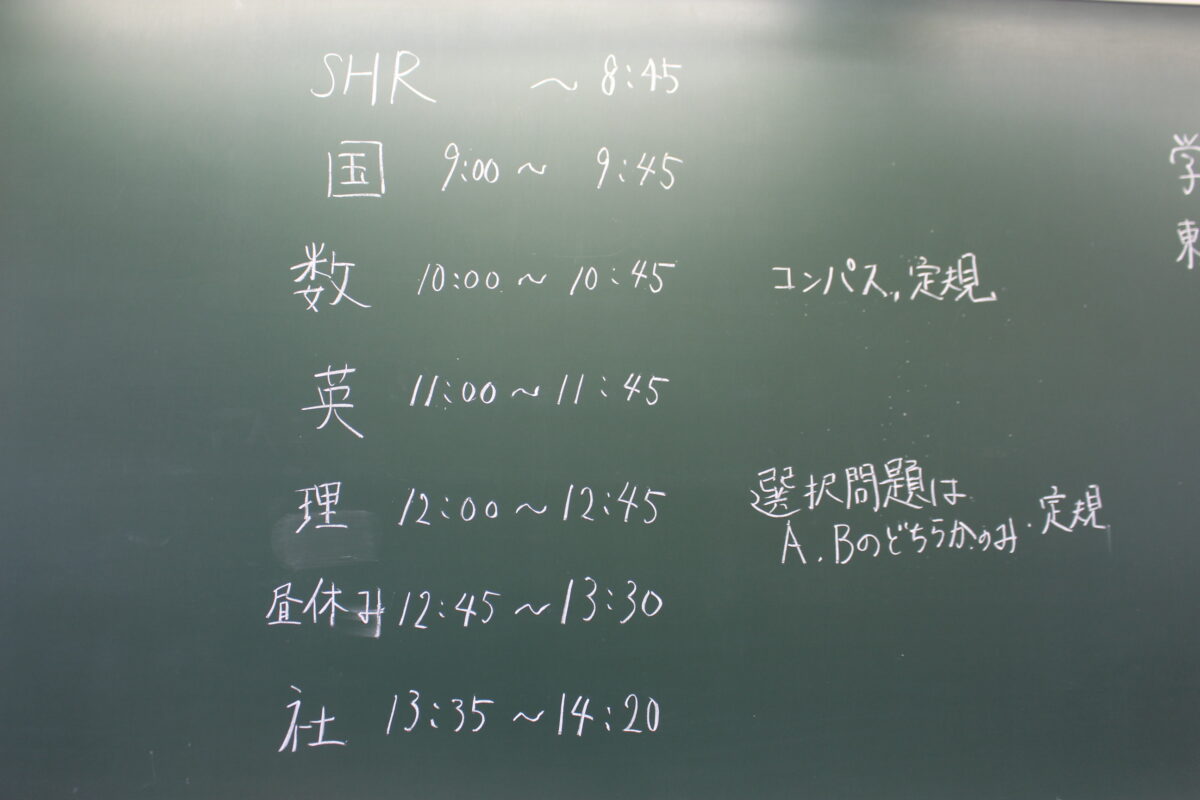 SHR ～8:45
国 9:00～9:45
数 10:00～10:45 コンパス,定規
英 11:00～11:45
理 12:00～12:45 選択問題は
A.Bのどちらかのみ・定規
昼休み 12:45～13:30
社 13:35～14:20
学
東